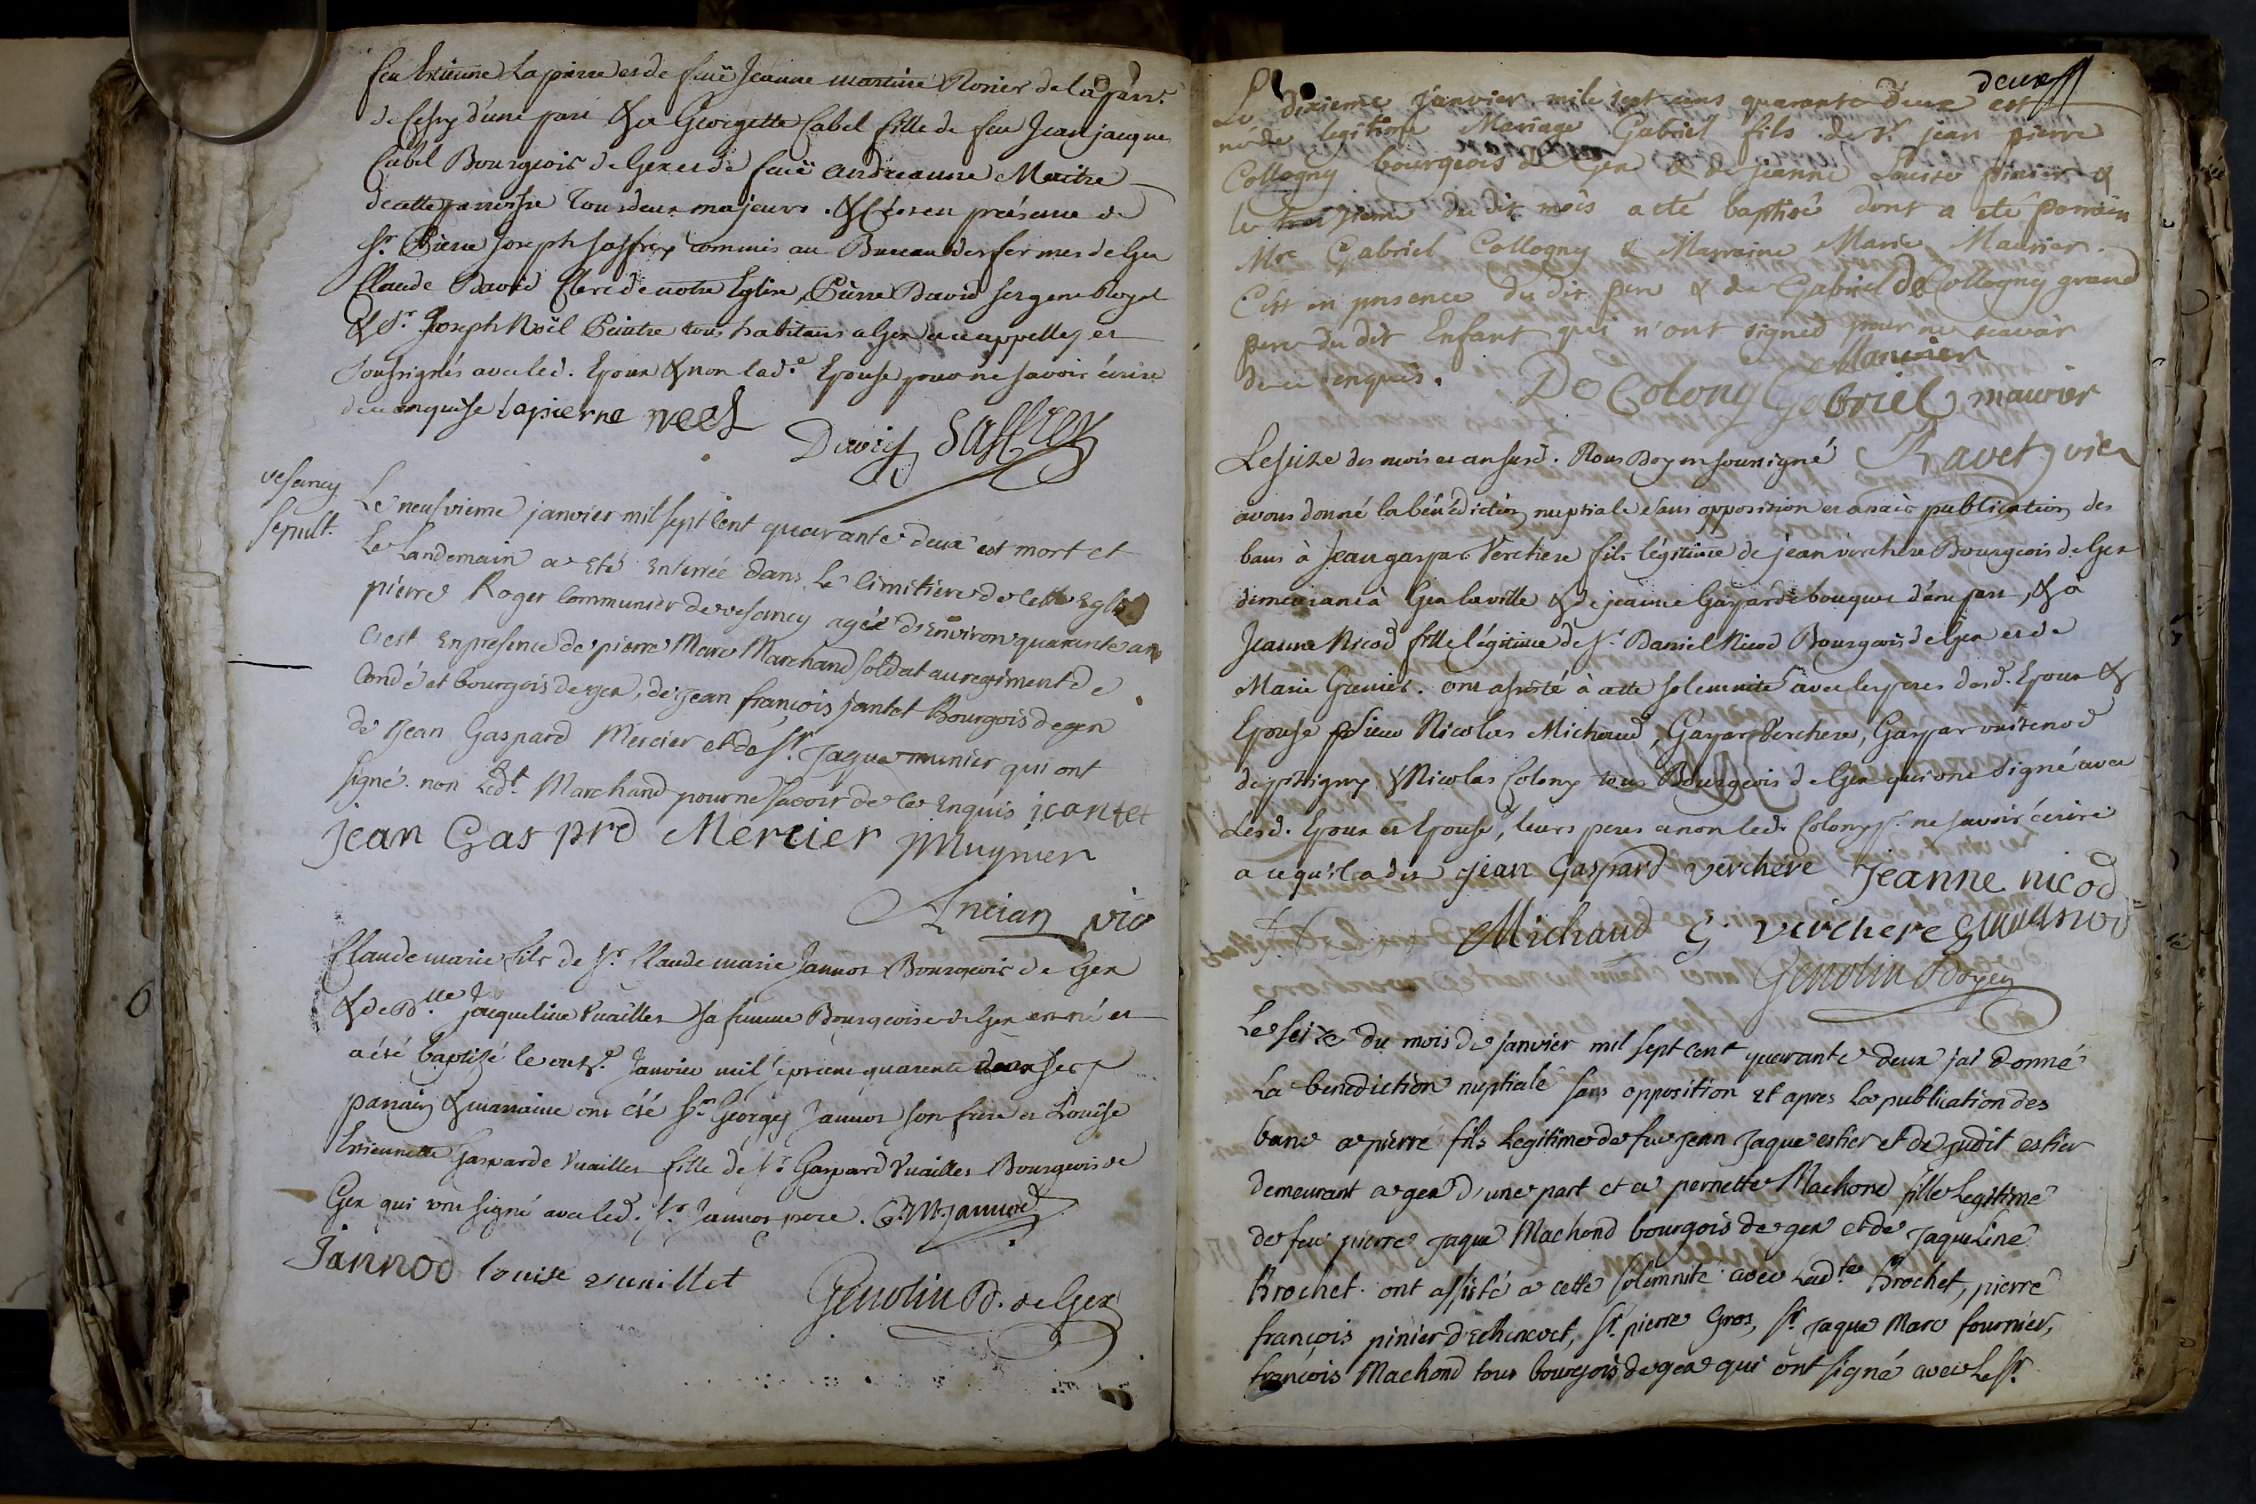 feu Estienne Lapierre et de feuë Jeanne martine Ronier de la parr.
de Cessy d'une part & a Georgette Cabel fille de feu Jean jacque
Cabel Bourgeois de Gex et de feuë andreanne Maitre
de cette parroisse tous deux majeurs . & ce en présence de
Sr. Pierre Joseph Saffrey commis au Bureau des fermes de Gex
Claude David Clerc de notre Eglise, Pierre David sergent Royal
& Sr. Joseph Noël Peintre tous habitans a Gex a ce appellés et
soussignés avec led. Epoux & non lad.e Epouse pour ne savoir écrire
de ce enquise Lapierre noel
David Saffrey
vesancy
sepult.
Le neufvieme janvier mil sept cent quarante deux est mort et
Le Landemain a eté enterrée dans Le cimitiere de cette Eglise
pierre Roger communier de vesancy agée d'Environ quarante ans
C'est En presence de pierre Marc Marchand soldat au regiment de
Condé et bourgois de gex, de jean françois jantet Bourgois de gex
de jean Gaspard Mercier et de Sr. jaque munier qui ont
signé . non Led.t Marchand pour ne sçavoir de ce Enquis jcantet
jean Gasprd Mercier j Mugnier
Ancian vic
Claude marie fils de Sr. Claude marie Jannot Bourgeois de Gex
& de D.lle Jacqueline Vuaillet sa femme Bourgeoise de Gex est né et
a été baptizé le onz.e Janvier mil sept cent quarente deux ses
parrain & marraine ont été Sr. Georges Jannot son frere et Louïse
Estiennette Gasparde Vuaillet fille de Sr. Gaspard Vuaillet Bourgeois de
Gex qui ont signé avec led. Sr. Jannot pere . C. M. jannod
Jannod louise vuaillet
Genolin D. de Gex
deux
Le dixieme janvier mile sept cens quarante d'eux est
né de legitime Mariage Gabriel fils de Sr. jean pierre
Collogny bourgeois de Gex & de jeanne Louise pinier &
le du dit mois a eté baptisé dont a eté parrain
Mre Gabriel Collogny & Marraine Marie Maurier .
C'est en presence du dit pere & de Gabriel de Collogny grand
pere du dit Enfant qui n'ont signed pour ne scavoir
de ce enquis . De Colony Gabriel maurier
Ravet vic
Le seize des mois et an susd. Nous Doyen soussigné
avons donné la bénédiction nuptiale sans opposition et après publication des
bans à Jean gaspar Verchere fils légitime de jean verchere Bourgeois de Gex
demeurant à Gex la ville & de jeanne Gasparde bouquet d'une part, & à
Jeanne Nicod fille légitime de Sr. Daniel Nicod Bourgeois de Gex et de
Marie Grenier . ont assisté à cette solemnité avec les peres desd. Epoux &
Epouse Sieur Nicolas Michaud, Gaspar Verchere, Gaspar
de pittigny & Nicolas Colony tous Bourgeois de Gex qui ont signé avec
Lesd. Epoux et Epouse, leurs peres a non led. Colony pr. ne savoir écrire
a ce qu'il a dit jean Gaspard verchere Jeanne nicod
Michaud G verchere
Genolin Doyen
Le seize du mois de janvier mil sept cent quarante deux jai donné
La benediction nuptiale sans opposition et apres La publication des
banc a pierre fils Legitime de feu jean jaque estier et de judit estier
demeurant a gex d'une part et a pernette Machond fille Legitime
de feu pierre jaque Machond bourgois de gex et de jaqueline
Brochet . ont assisté a cette solemnité avec Lad.te Brochet, pierre
françois pinier d'Echenevet, Sr. pierre Gros, Sr. jaque Marc fournier,
françois Machond tous bourgois de gex qui ont signé avec Le Sr.